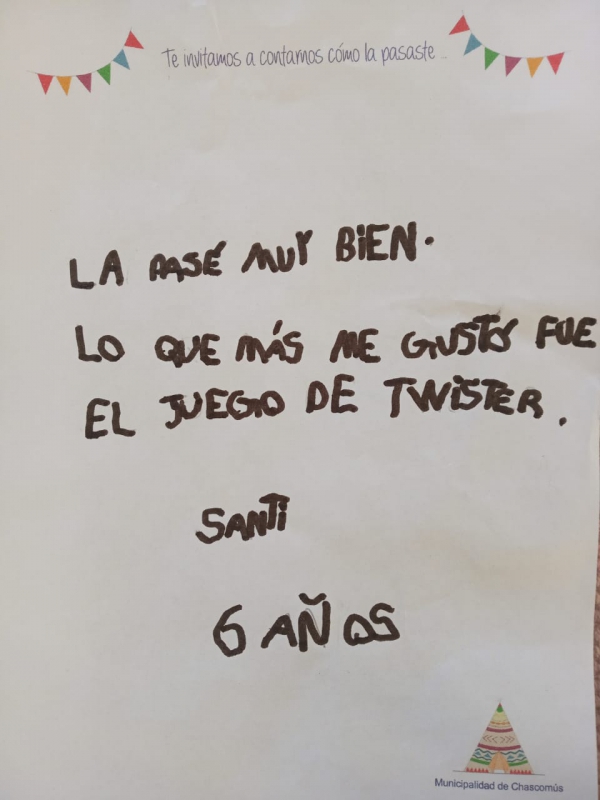 Te invitamos a contarnos cómo la pasaste...
LA PASÉ MUY BIEN.
LO QUE MÁS ME GUSTÓ FUE
EL JUEGO DE TWISTER.
SANTI
6 AÑOS
Municipalidad de Chascomús